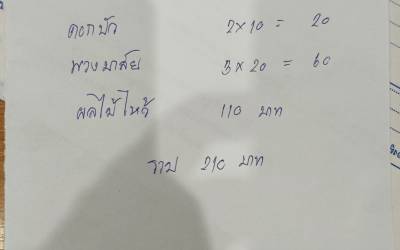 ดอกบัว 2×10 = 20
พวงมาลัย 3×20 = 60
ผลไม้ไหว้ 110 บาท
รวม 210 บาท